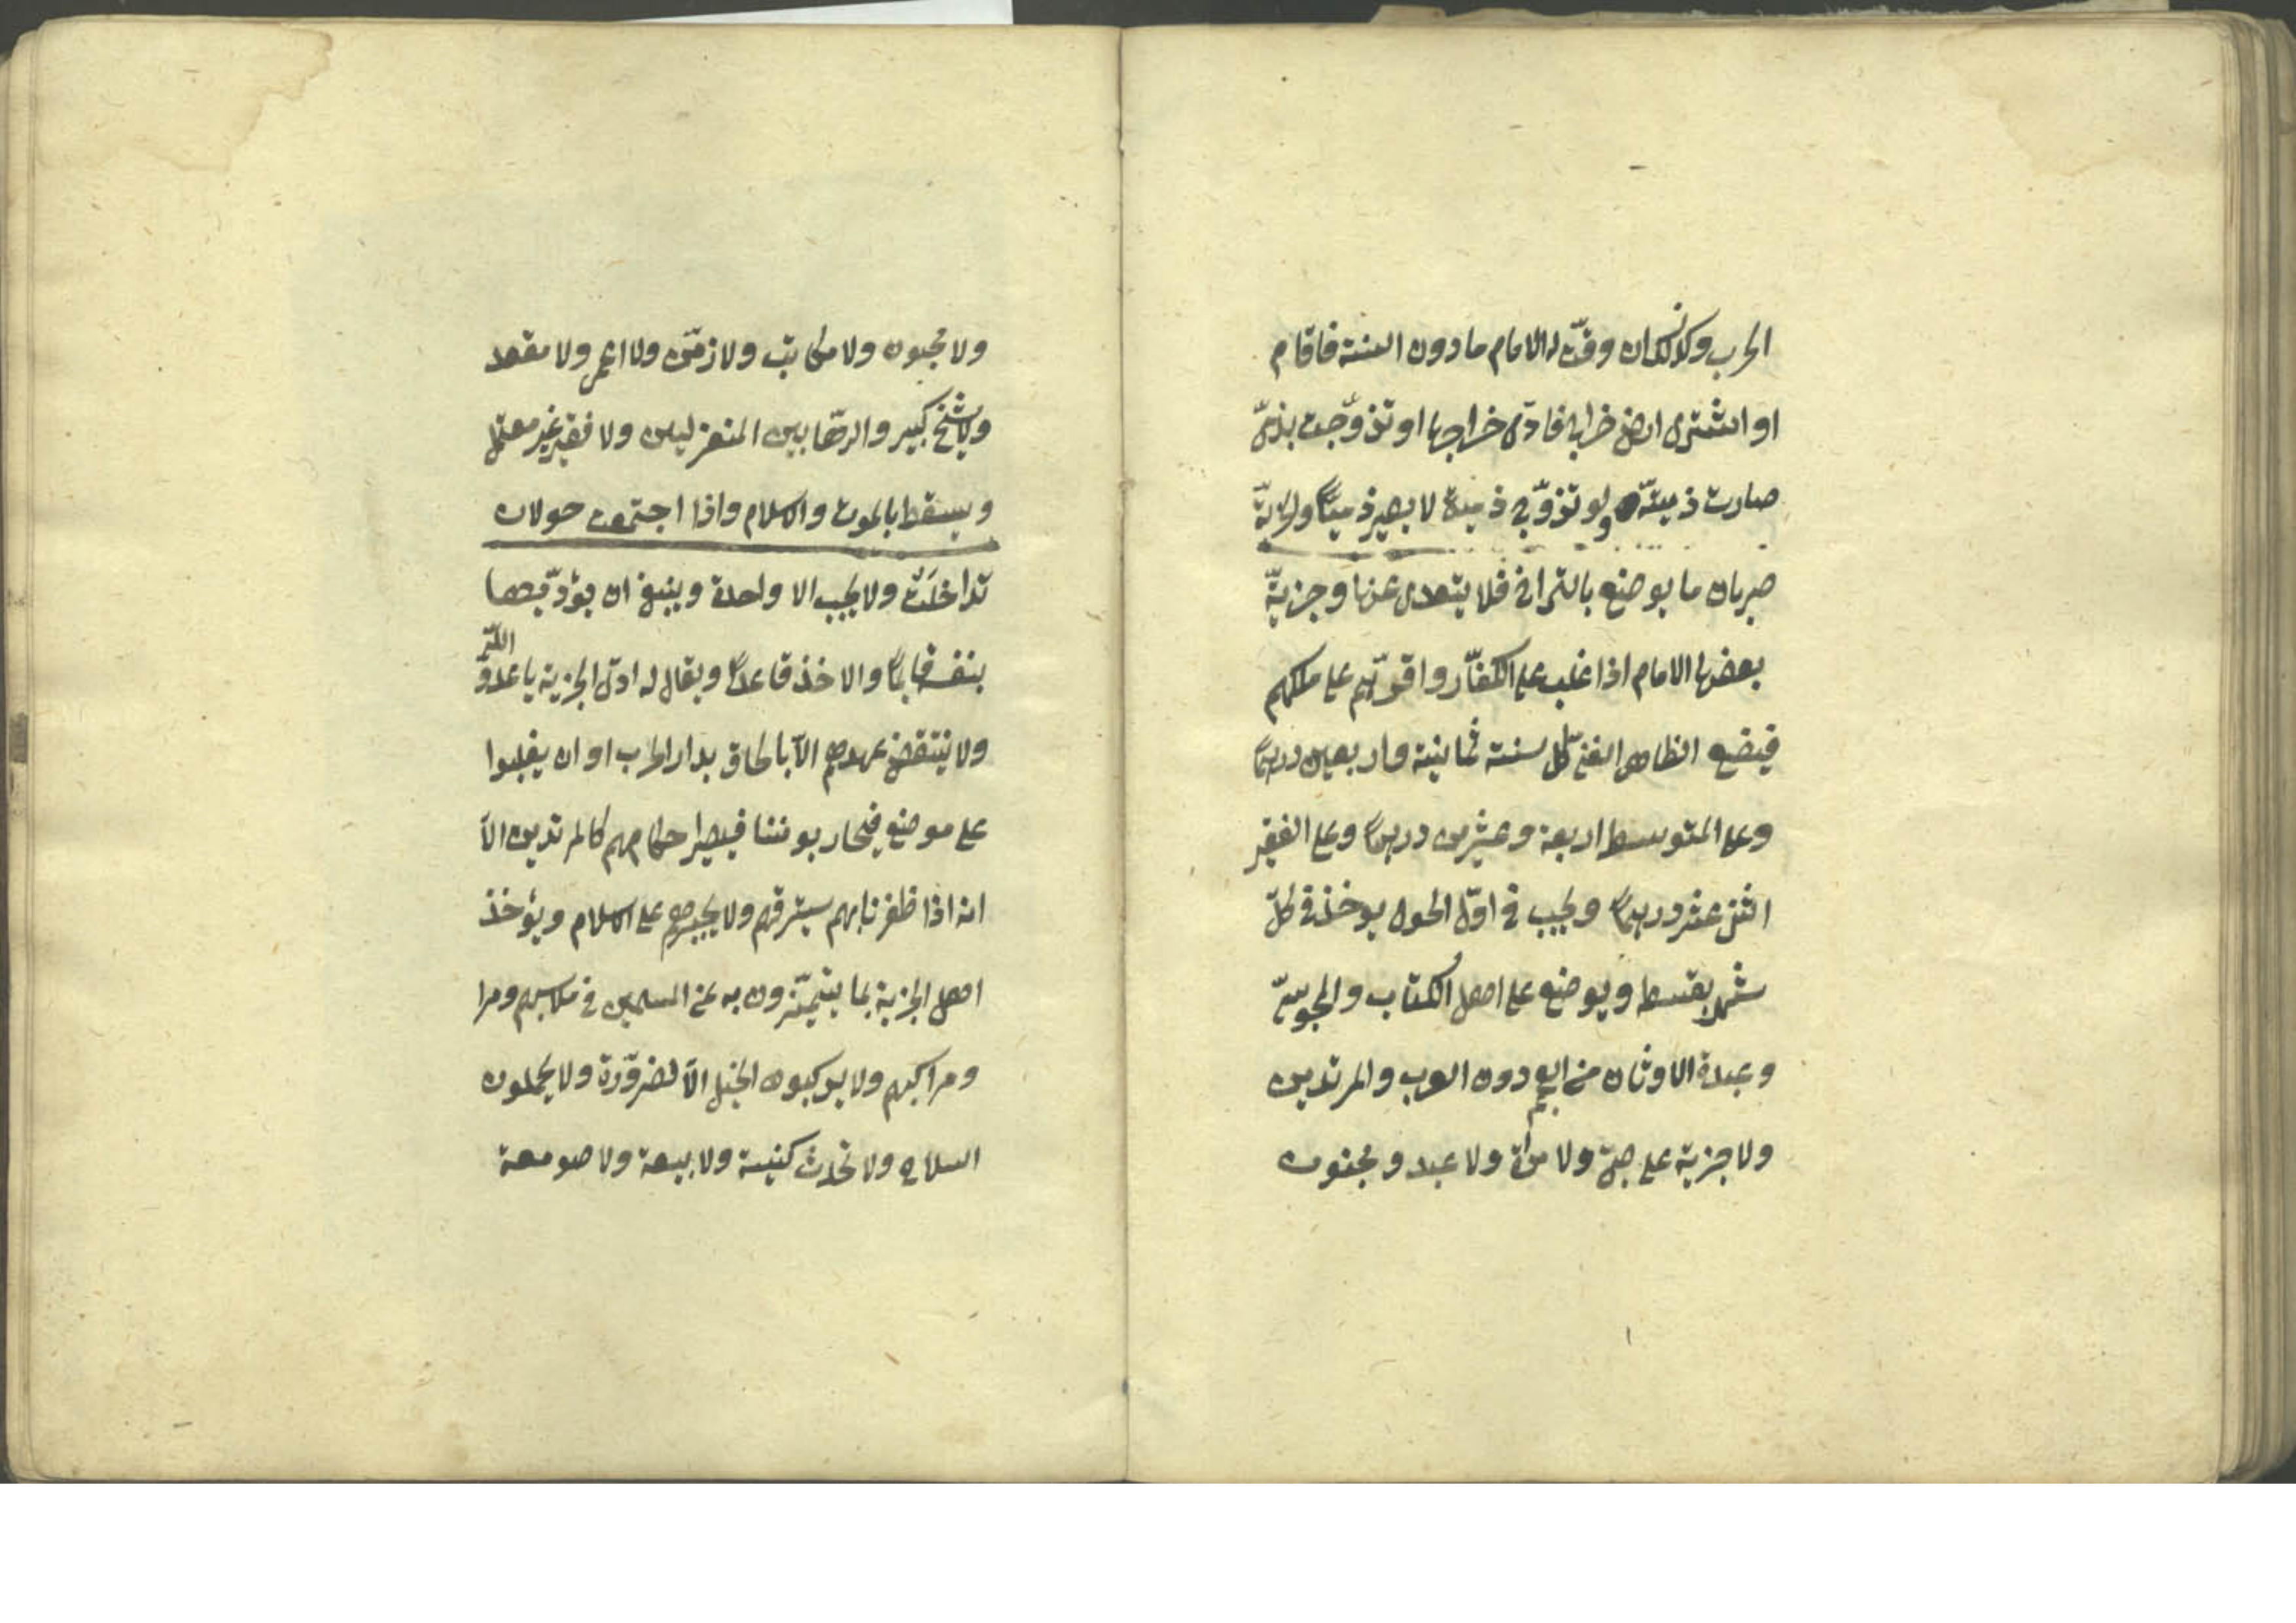 الحرب وكذلك ان وقّت له الامام ما دون السنة فاقام
او اشترى ارض خراج فادّى خراجها او تزوّجت بذمّى
صارت ذميّة ولو تزوّج ذمية لا يصير ذميّا والجزيّة
ضربان ما يوضع بالتراضى فلا يتعدى عنها وجزيّة
يضعها الامام اذا غلب على الكفّار واقرّهم على ملكهم
فيضع الظاهر الغنى كل سنة ثمانية واربعين درهما
وعلى المتوسط اربعة وعشرين درهما وعلى الفقير
اثنى عشر درهما ويجب فى اوّل الحول يوخذ فى كلّ
شهر بقسط ويوضع على اهل الكتاب والمجوسىّ
وعبدة الاوثان من العجم دون العرب والمرتدين
ولا جزية على صبىّ ولا مرأة ولا عبد ومجنون
ولا مجبون ولا مكاتب ولا زمّن ولا اعمى ولا مقعد
ولا شيخ كبير والرهّابين المنعزلين ولا فقير غير معتمل
ويسقط بالموت والاسلام واذا اجتمعت حولان
تداخلَتْ ولا يجب الا واحدة وينبغى ان يؤدّيها
بنفسه قايما والاخذ قاعدا ويقال له ادّى الجزية يا عدوّ اللّه
ولا ينتقض عهدهم الّا بالحاق بدار الحرب او ان يغلبوا
على موضع فيحاربوننا فيصير احكامهم كالمرتدين الّا
انه اذا ظفرنا بهم نسترقهم ولا يجبرهم على الاسلام ويؤخذ
اهل الجزية بما يتميّزون به عن المسلمين فى ملابسهم ومرا
ومراكبهم ولا يركبون الخيل الّا لضرّورة ولا يحملون
السلاح ولا تحدث كنيسة ولا بيعة ولا صومعة